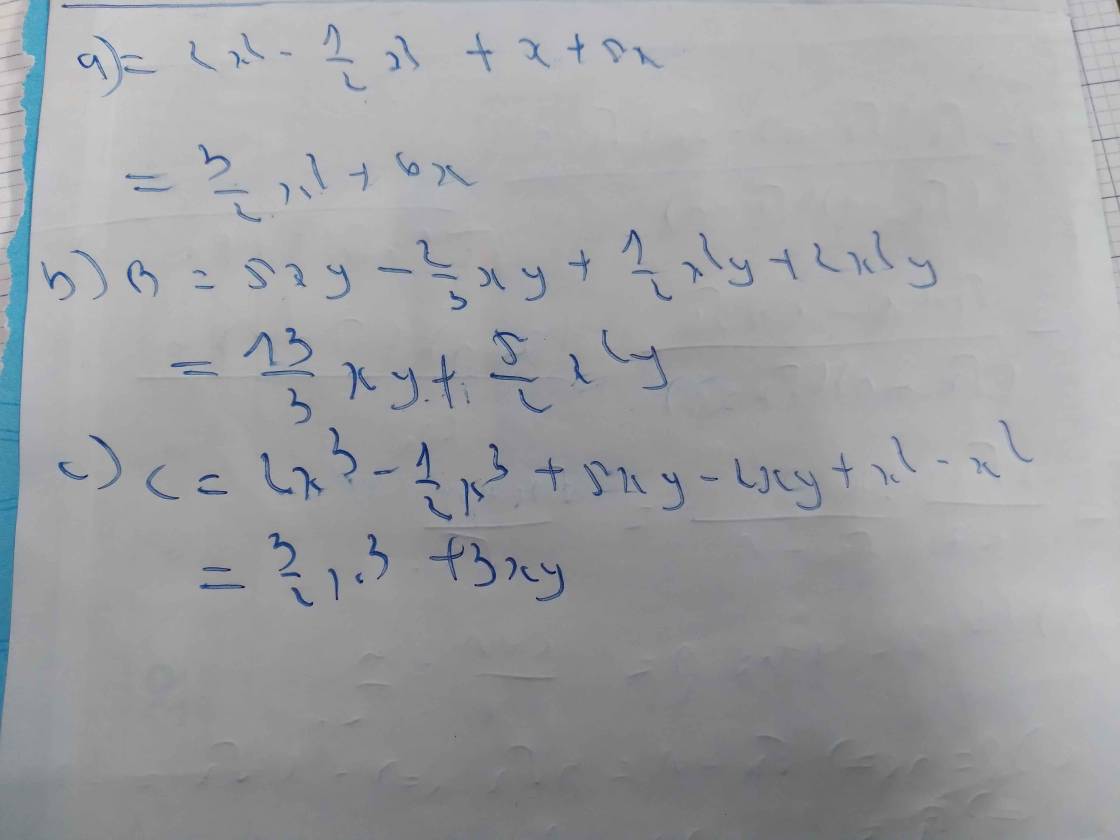 a) = 2x² - 1/2 x² + x + 5x
= 3/2 x² + 6x
b) B = 5xy - 2/3 xy + 1/2 x²y + 2x²y
= 13/3 xy + 5/2 x²y
c) C = 2x³ - 1/2 x³ + 5xy - 2xy + x² - x²
= 3/2 x³ + 3xy